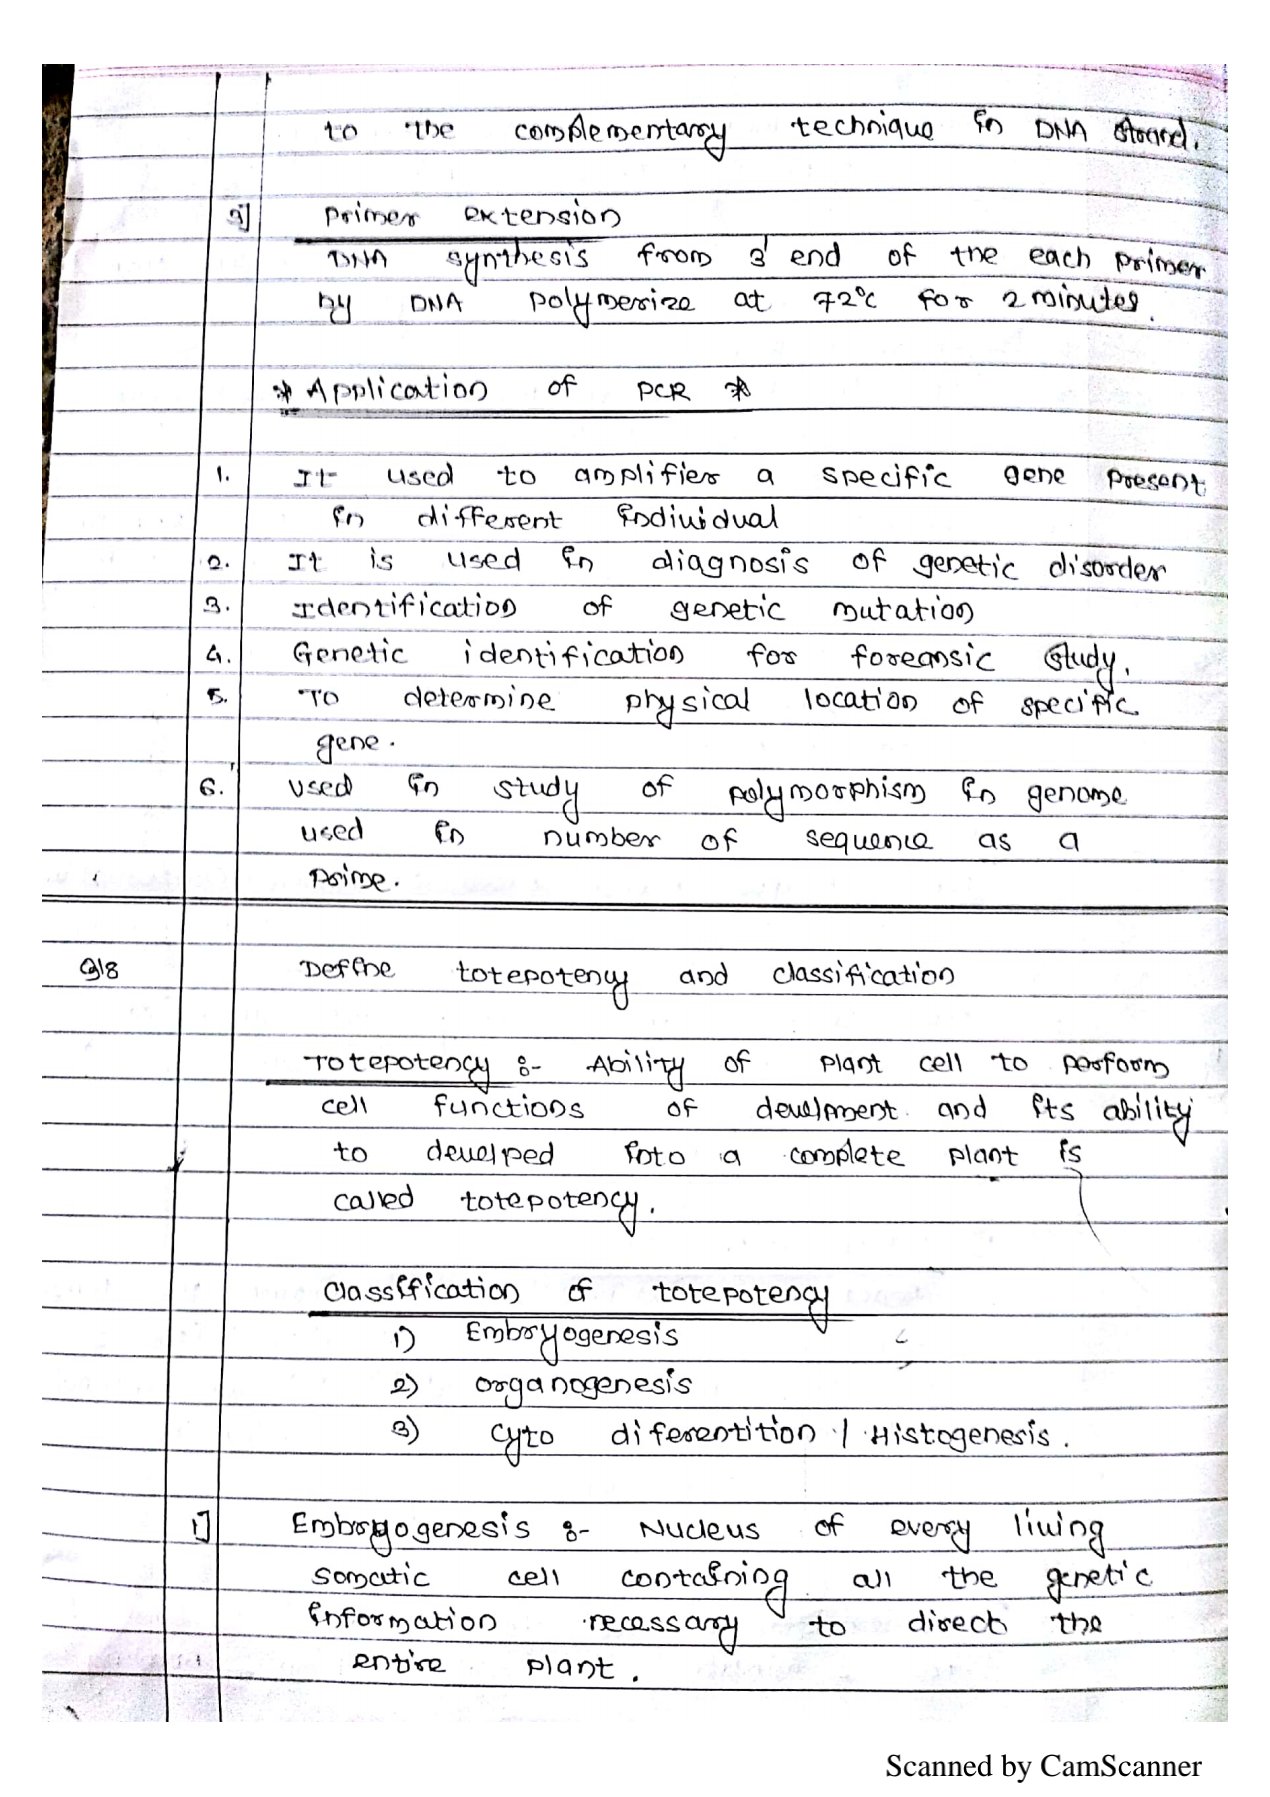 to the complementary technique in DNA strand.
3] Primer extension
DNA synthesis from 3' end of the each primer
by DNA polymerize at 72°c for 2 minutes.
* Application of PCR *
1. It used to amplifier a specific gene present
in different individual
2. It is used in diagnosis of genetic disorder
3. Identification of genetic mutation
4. Genetic identification for foreansic study.
5. To determine physical location of specific
gene.
6. used in study of polymorphism in genome
used in number of sequence as a
prime.
Q18 Define totepotency and classification
Totepotency :- Ability of plant cell to perform
cell functions of develpment and its ability
to develped into a complete plant is
called totepotency.
Classification of totepotency
1) Embryogenesis
2) organogenesis
3) cyto diferentition / Histogenesis.
1] Embryogenesis :- Nucleus of every living
somatic cell containing all the genetic
information necessary to direct the
entire plant.
Scanned by CamScanner